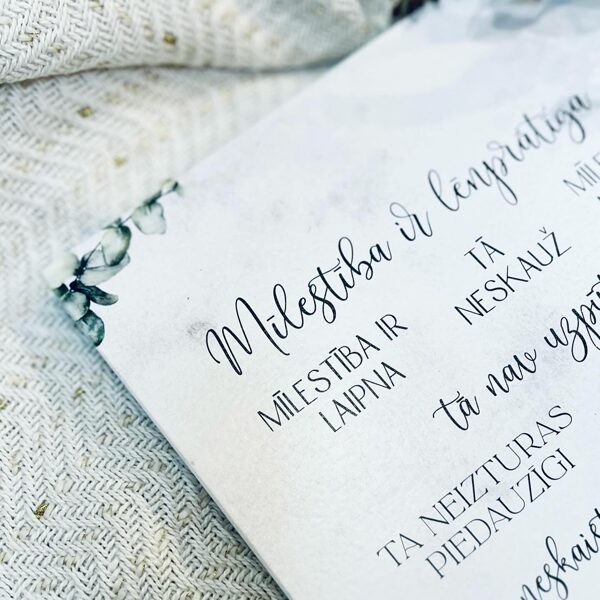 Mīlestība ir lēnprātīga
MĪLESTĪBA IR
LAIPNA
TĀ
NESKAUŽ
tā nav
TA NEIZTURAS
PIEDAUZĪGI